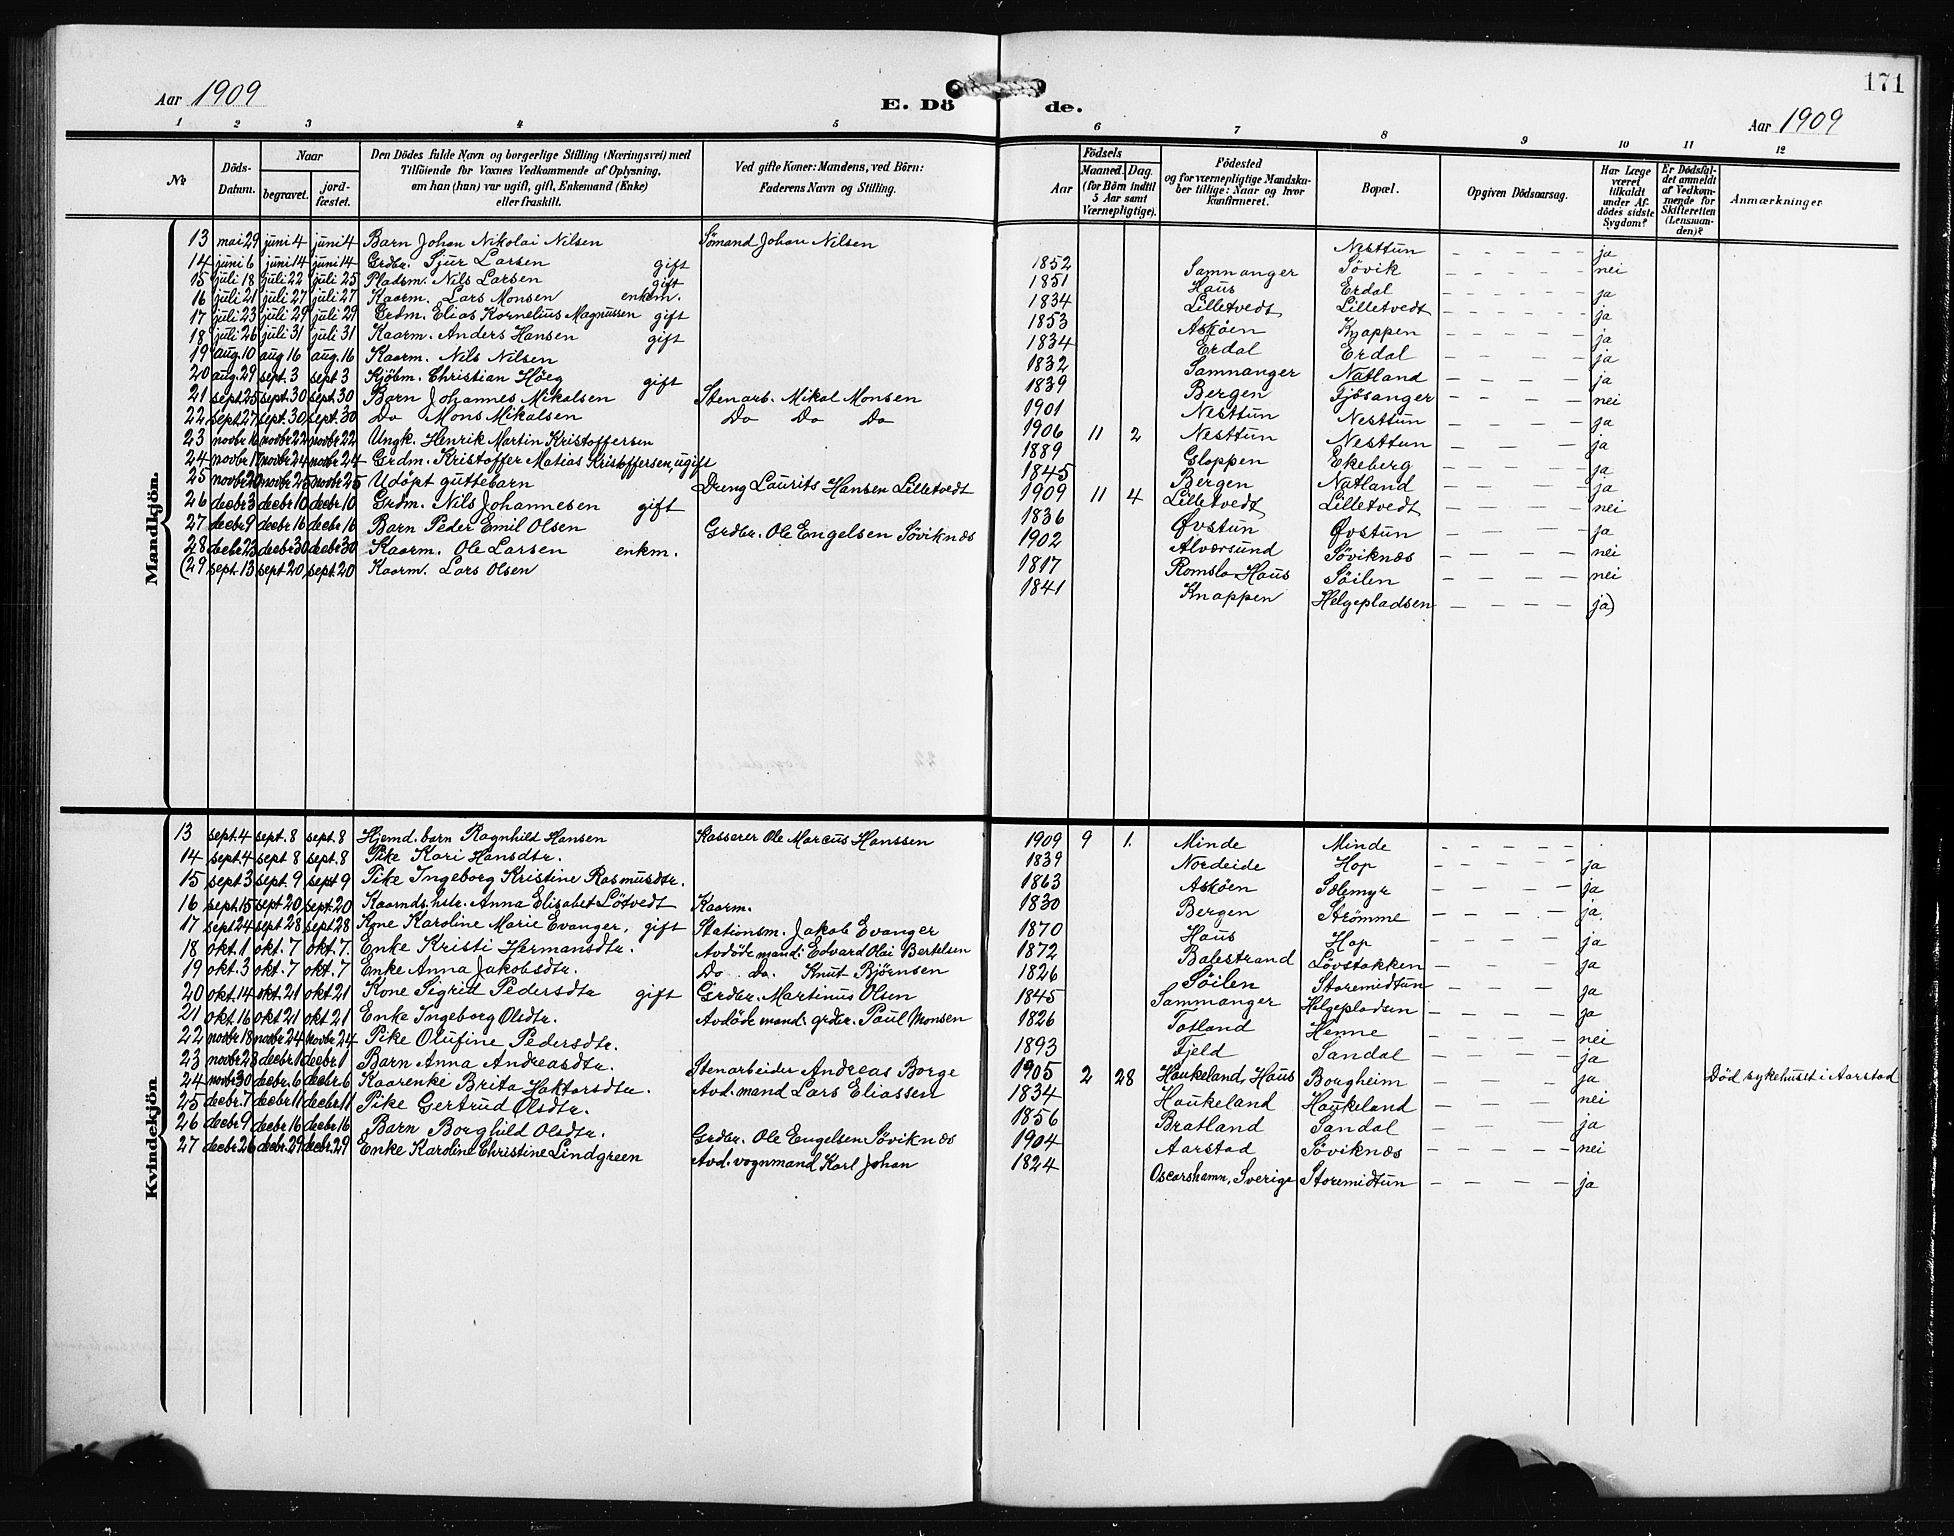 171
Aar 1909
E. Dö de.
Aar 1909
1 2 3 4 5 6 7 8 9 10 11 12
№
Döds-Datum.
Naar
begravet.
jord-fæstet.
Den Dödes fulde Navn og borgerlige Stilling (Næringsvei) med
Tilföiende for Voxnes Vedkommende af Oplysning,
om han (hun) var ugift, gift, Enkemand (Enke)
eller fraskilt.
Ved gifte Koner: Mandens, ved Börn:
Faderens Navn og Stilling.
Födsels
Aar
Maaned. Dag.
(for Börn indtil
5 Aar samt
Værnepligtige).
Födested
og for værnepligtige Mandska-
ber tillige: Naar og hvor
konfirmeret.
Bopæl.
Opgiven Dödsaarsag.
Har Læge
været
tilkaldt
under Af-
dödes sidste
Sygdom?
Er Dödsfal-
det anmeldt
af Vedkom-
mende for
Skifteretten
(Lensman-
den)?
Anmærkninger
Mandkjön.
13 mai 29 juni 4 juni 4 Barn Johan Nikolai Nilsen Sömand Johan Nilsen Nesttun - - - - ja
14 juni 6 juni 14 juni 14 Grdbr. Sjur Larsen gift 1852 Samnanger Sövik - - - - nei
15 juli 18 juli 22 juli 25 Pladsm. Nils Larsen gift 1851 Haus Erdal - - - - ja
16 juli 21 juli 27 juli 27 Kaarm. Lars Monsen enkem. 1834 Lilletvedt Lilletvedt - - - - ja
17 juli 23 juli 29 juli 29 Grdm. Elias Kornelius Magnussen gift 1853 Asköen Kjappen - - - - ja
18 juli 26 juli 31 juli 31 Kaarm. Anders Hansen gift 1834 Erdal Erdal - - - - ja
19 aug. 10 aug 16 aug. 16 Kaarm. Nils Nilsen 1832 Samnanger Natland - - - - ja
20 aug. 29 sept. 3 sept 3 Kjöbm. Christian Höeg gift 1839 Bergen Fjösanger - - - - nei
21 sept. 25 sept. 30 sept. 30 Barn Johannes Mikalsen Stenarb. Mikal Monsen 1901 Nesttun Nesttun - - - - ja
22 sept. 27 sept. 30 sept. 30 Do Mons Mikalsen Do Do Do 1906 11 2 Nesttun Nesttun - - - - ja
23 novbr 16 novbr 22 novbr 22 Ungk. Henrik Martin Kristoffersen 1889 Gloppen Ekeberg - - - - ja
24 novbr 17 novbr 24 novbr 24 Grdm. Kristoffer Matias Kristoffersen, ugift 1845 Bergen Natland - - - - ja
25 novbr 20 novbr 25 novbr 25 Udöpt guttebarn Dreng Laurits Hansen Lilletvedt 1909 11 4 Lilletvedt Lilletvedt - - - - nei
26 decbr 3 decbr 10 decbr 10 Grdm. Nils Johannesen gift 1836 Øvstun Øvstun - - - - ja
27 decbr 9 decbr 16 decbr 16 Barn Peder Emil Olsen Grdbr. Ole Engelsen Söviknæs 1902 Alversund Söviknæs - - - - nei
28 decbr 23 decbr 30 decbr 30 Kaarm. Ole Larsen enkm. 1817 Romslo Haus Söilen - - - - nei
(29 sept. 13 sept 20 sept. 20 Kaarm. Lars Olsen 1841 Knappen Helgepladsen - - - - ja)
Kvindekjön
13 sept. 4 sept. 8 sept. 8 Hjemd. barn Ragnhild Hansen Kasserer Ole Marcus Hanssen 1909 9 1. Minde Minde - - - -
14 sept. 4 sept 8 sept. 8 Pike Kari Hansdtr. 1839 Nordeide Hop - - - - ja
15 sept 3 sept. 9 sept 9 Pike Ingeborg Kristine Rasmusdtr. 1863 Asköen Solemyr - - - - ja
16 sept. 15 sept 20 sept. 20 Kaarmds. hstr. Anna Elisabet Lötvedt Kaarm. 1830 Bergen Strömme - - - - ja.
17 sept 24 sept 28 sept 28 Kone Karoline Marie Evanger, gift Stationsm. Jakob Evanger 1870 Haus Hop - - - - ja
18 okt. 1 okt. 7 okt. 7. Enke Kristi Hermansdtr. Avdöde mand: Edvard Olai Bertelsen 1872 Balestrand Lövstakken - - - - ja
19 okt. 3 okt. 7 okt. 7 Enke Anna Jakobsdtr. Do. Do. Knut Björnsen 1826 Söilen Storemidtun - - - - ja
20 okt. 14 okt. 21 okt 21 Kone Sigrid Pedersdtr gift Grdbr. Martinus Olsen 1845 Sammanger Helgepladsen - - - - ja
21 okt. 16 okt 21 okt. 21 Enke Ingeborg Olsdtr. Avdöde mand: grdbr. Paul Monsen 1826 Totland Henne - - - - nei
22 novbr 18 novbr 24 novbr 24 Pike Olufine Pedersdtr. 1893 Fjeld Sandal - - - - ja
23 novbr 28 decbr. 1 decbr 1 Barn Anna Andreasdtr. Stenarbeider Andreas Borge 1905 2 28 Haukeland, Haus Borgheim - - - - ja Död sykehuset i Aarstad
24 novbr 30 decbr. 6 decbr 6 Kaarenke Brita Haktorsdtr. Avd. mand Lars Eliassen 1834 Haukeland Haukeland - - - - nei
25 decbr. 7 decbr 11 decbr 11 Pike Gertrud Olsdtr. 1856 Bratland Sandal - - - - ja
26 decbr 9 decbr 16 decbr 16 Barn Borghild Olsdtr. Grdbr. Ole Engelsen Söviknæs 1904 Aarstad Söviknæs - - - - nei
27 decbr 26 decbr 29 decbr. 29 Enke Karoline Christine Lindgreen Avd. vognmand Karl Johan 1824 Oscarshamn, Sverige Storemidtun - - - - ja